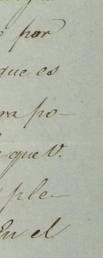 por
que es
ra po-
que V.
ple-
En el